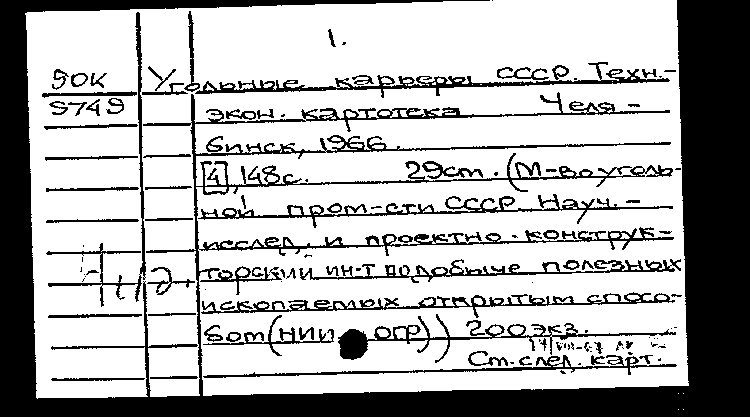 1.
90К Угольные карьеры СССР. Техн.-
9749 экон. картотека Челя-
бинск, 1966.
[4], 148с. 29cm. (М-во уголь-
ной пром-сти СССР. Науч.-
исслед. и проектно-конструк-
торский ин-т по добыче полезных
ископаемых открытым спосо-
бом (НИИ ОГР)) 200 экз.
См. след. карт.